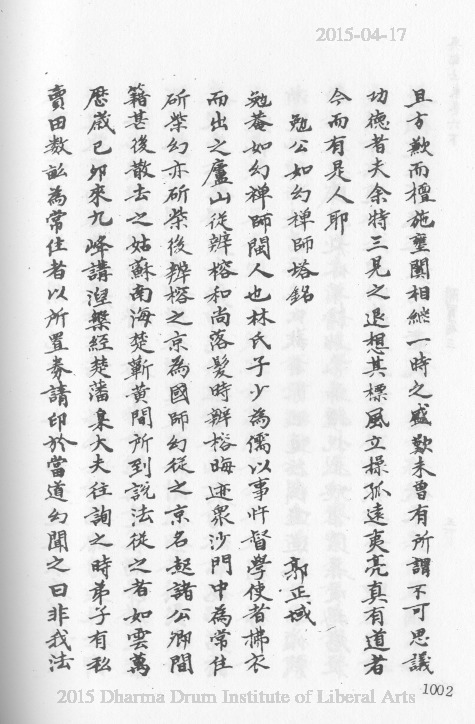 2015-04-17
且方歉而檀施壟闐相繼一時之盛歎未曾有所謂不可思議
功德者夫余特三見之退想其標風立操孤遠夷亮真有道者
今而有是人耶
勉公如幻禪師塔銘
郭正域
勉菴如幻禅師閩人也林氏子少為儒以事忤督學使者拂衣
而出之廬山從辨榕和尚落髮時辨榕晦迹衆沙門中為常住
斫柴幻亦斫柴後辨榕之京為國師幻從之京名起諸公卿間
籍甚後散去之姑蘇南海楚蘄黃間所到說法從之者如雲萬
歷歲己卯來九峰講涅槃經楚藩臬大夫往詢之時弟子有私
賣田数畝為常住者以所置券請印於當道幻聞之曰非我法
1002
2015 Dharma Drum Institute of Liberal Arts